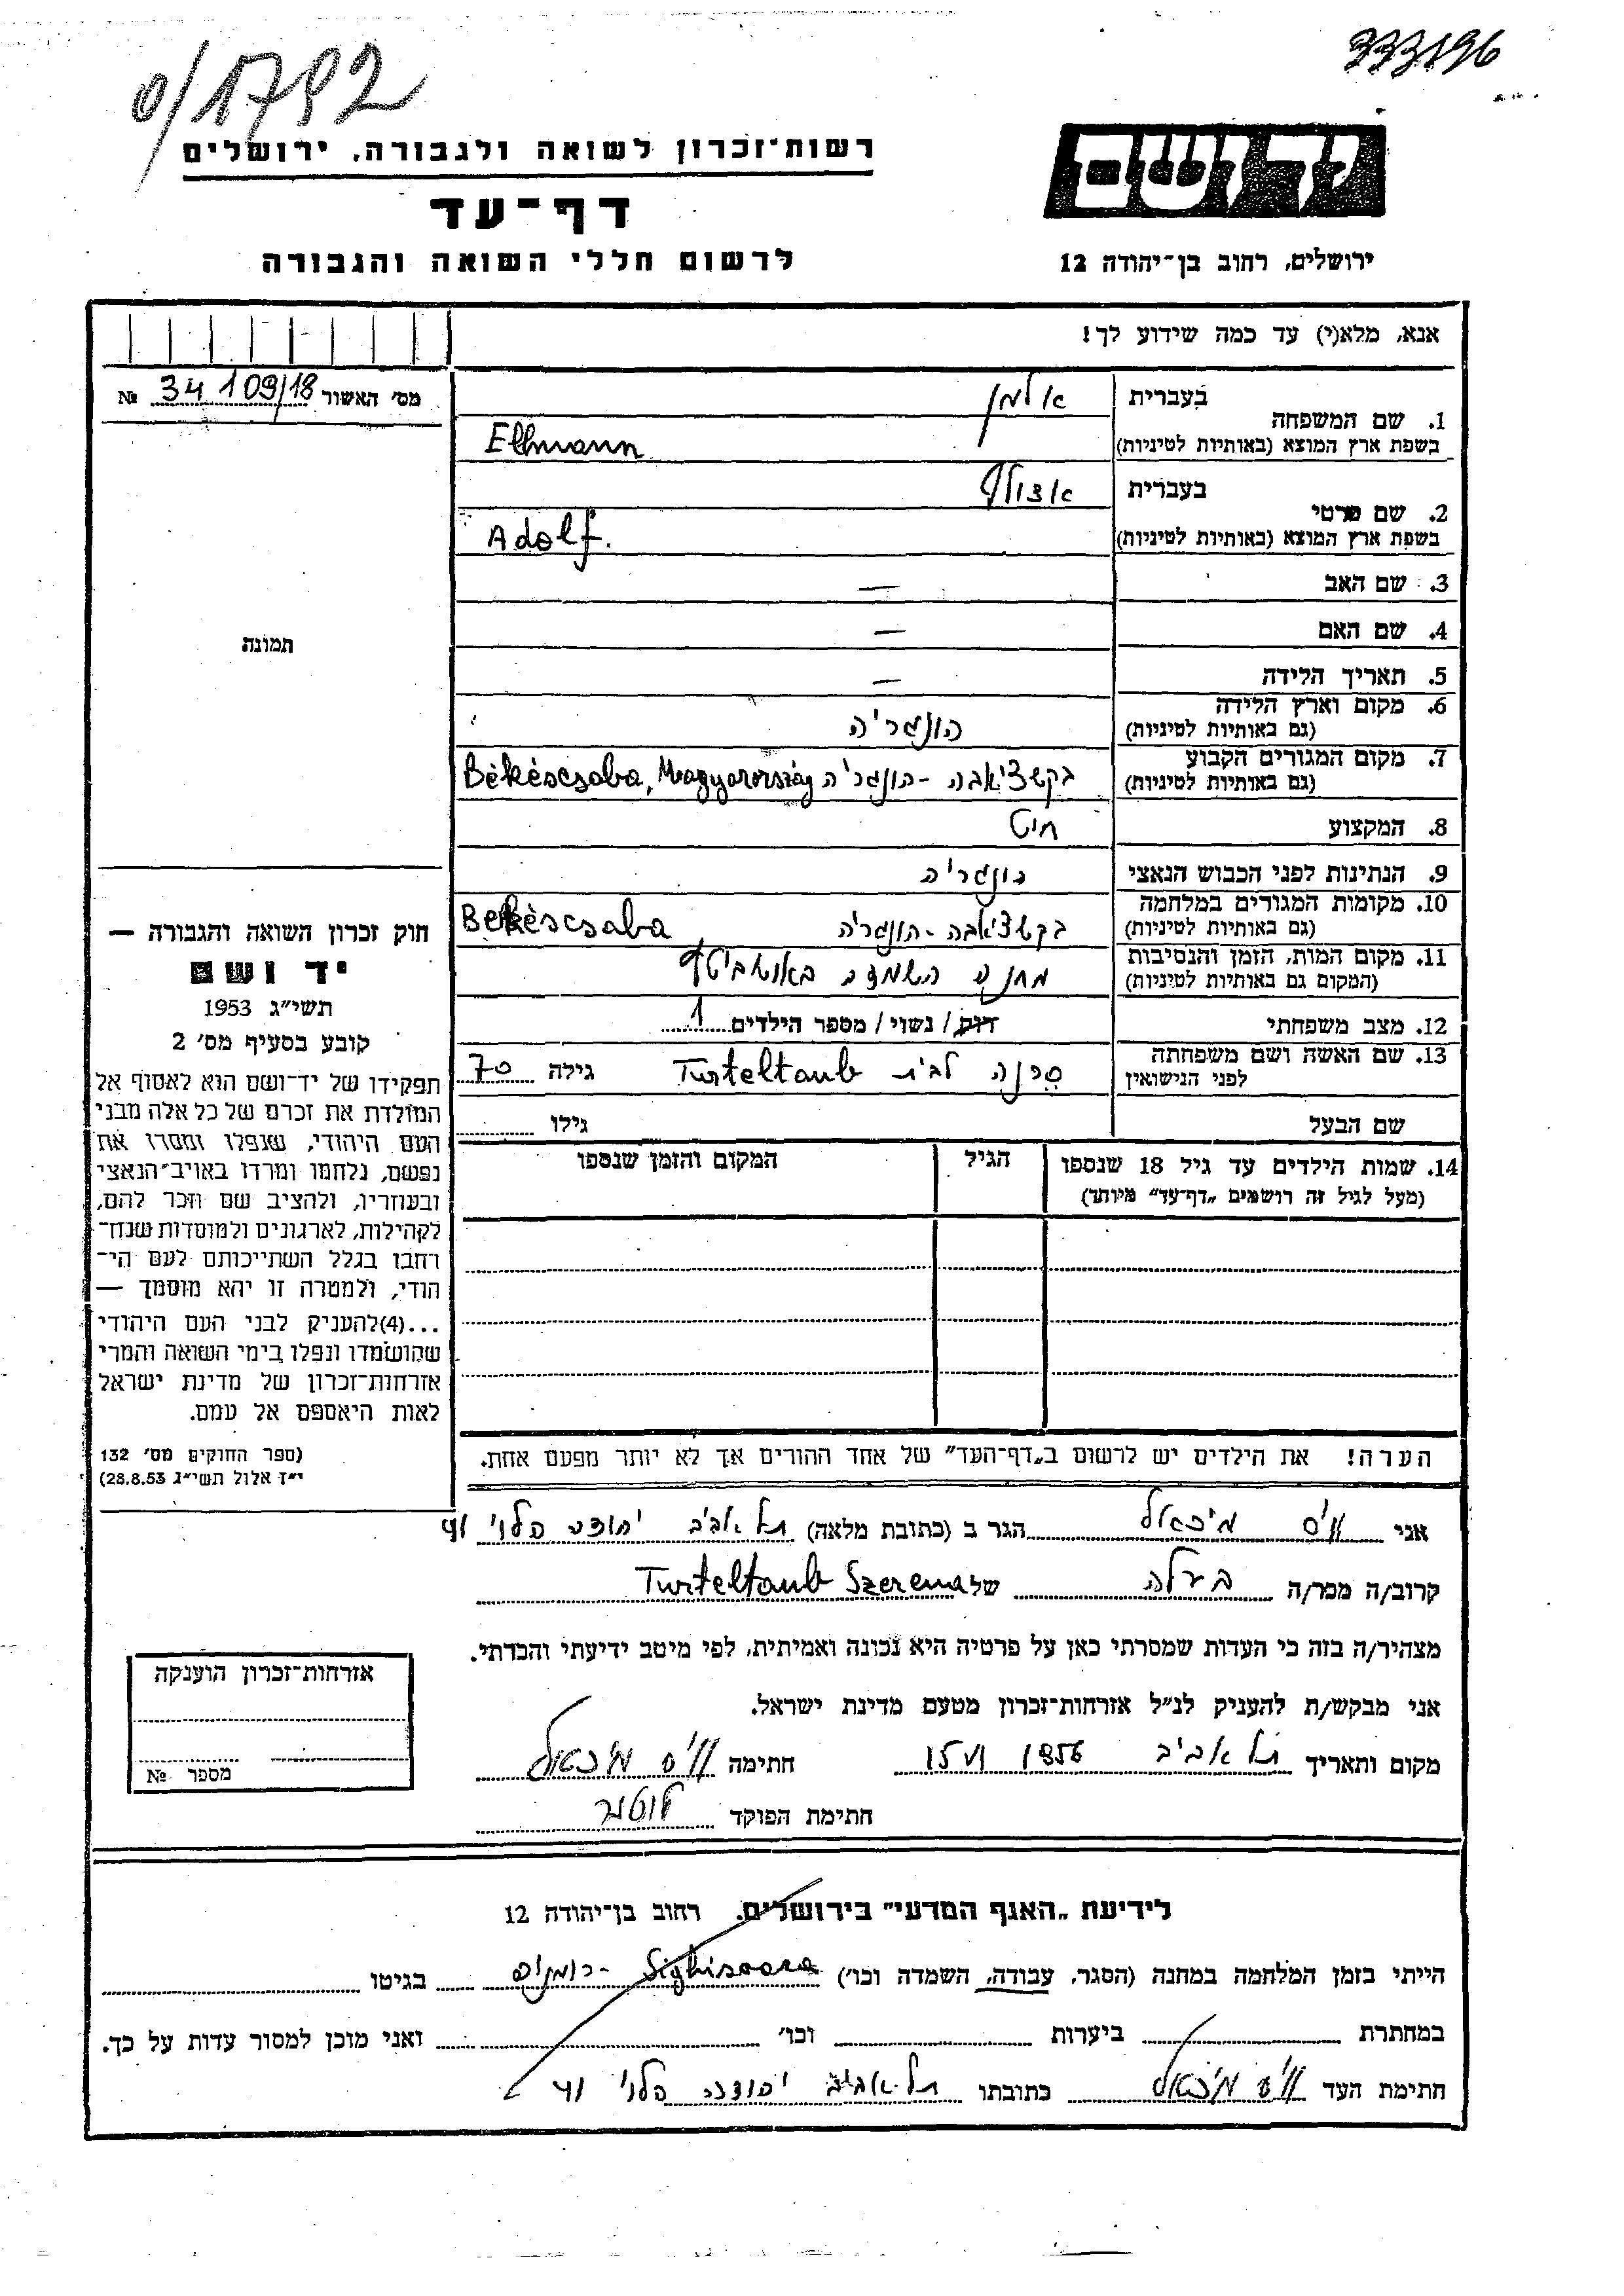 333196
0/1792
יד ושם
רשות־זכרון לשואה ולגבורה, ירושלים
דף־עד
ירושלים, רחוב בן־יהודה 12
לרשום חללי השואה והגבורה
אנא, מלא(י) עד כמה שידוע לך!
מס׳ האשור 34109/18 №
1. שם המשפחה
בעברית אלמן
בשפת ארץ המוצא (באותיות לטיניות) Ellmann
2. שם פרטי
בעברית אדולף
בשפת ארץ המוצא (באותיות לטיניות) Adolf.
3. שם האב —
4. שם האם —
5. תאריך הלידה —
6. מקום וארץ הלידה
(גם באותיות לטיניות) הונגריה
7. מקום המגורים הקבוע
(גם באותיות לטיניות) בקשצ׳אבה - הונגריה Békéscsaba, Magyarország
8. המקצוע חיט
9. הנתינות לפני הכבוש הנאצי הונגריה
10. מקומות המגורים במלחמה
(גם באותיות לטיניות) בקשצ׳אבה - הונגריה Békéscsaba
11. מקום המות, הזמן והנסיבות
(המקום גם באותיות לטיניות) מחנה השמדה באושביץ
12. מצב משפחתי רווק/ נשוי/ מספר הילדים 1
13. שם האשה ושם משפחתה
לפני הנישואין סרנה לבית Turteltaub גילה 70
שם הבעל גילו
14. שמות הילדים עד גיל 18 שנספו
(מעל לגיל זה רושמים „דף־עד” מיוחד)
הגיל
המקום והזמן שנספו
הערה! את הילדים יש לרשום ב„דף־העד” של אחד ההורים אך לא יותר מפעם אחת.
תמונה
חוק זכרון השואה והגבורה —
יד ושם
תשי״ג 1953
קובע בסעיף מס׳ 2
תפקידו של יד־ושם הוא לאסוף אל
המולדת את זכרם של כל אלה מבני
העם היהודי, שנפלו ומסרו את
נפשם, נלחמו ומרדו באויב־הנאצי
ובעוזריו, ולהציב שם וזכר להם,
לקהילות, לארגונים ולמוסדות שנח־
רחבו בגלל השתייכותם לעם הי־
הודי, ולמטרה זו יהא מוסמך —
...(4)להעניק לבני העם היהודי
שהושמדו ונפלו בימי השואה והמרי
אזרחות־זכרון של מדינת ישראל
לאות היאספם אל עמם.
(ספר החוקים מס׳ 132
י״ז אלול תשי״ג 28.8.53)
אני וייס מיכאל הגר ב (כתובת מלאה) תל אביב יהודה הלוי 41
קרוב/ה מכר/ה בעלה של Turteltaub Szerena
מצהיר/ה בזה כי העדות שמסרתי כאן על פרטיה היא נכונה ואמיתית, לפי מיטב ידיעתי והכרתי.
אני מבקש/ת להעניק לנ״ל אזרחות־זכרון מטעם מדינת ישראל.
מקום ותאריך תל אביב 15 VI 1956 חתימה וייס מיכאל
חתימת הפוקד
אזרחות־זכרון הוענקה
מספר №
לידיעת „האגף המדעי” בירושלים. רחוב בן־יהודה 12
הייתי בזמן המלחמה במחנה (הסגר, עבודה, השמדה וכו׳) Sighisoara - רומניה בגיטו
במחתרת ביערות וכו׳ ואני מוכן למסור עדות על כך.
חתימת העד וייס מיכאל כתובתו תל אביב יהודה הלוי 41